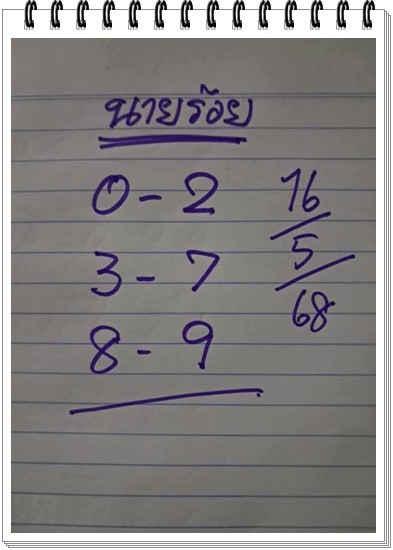 นายร้อย
0 - 2
3 - 7
8 - 9
16
5
68